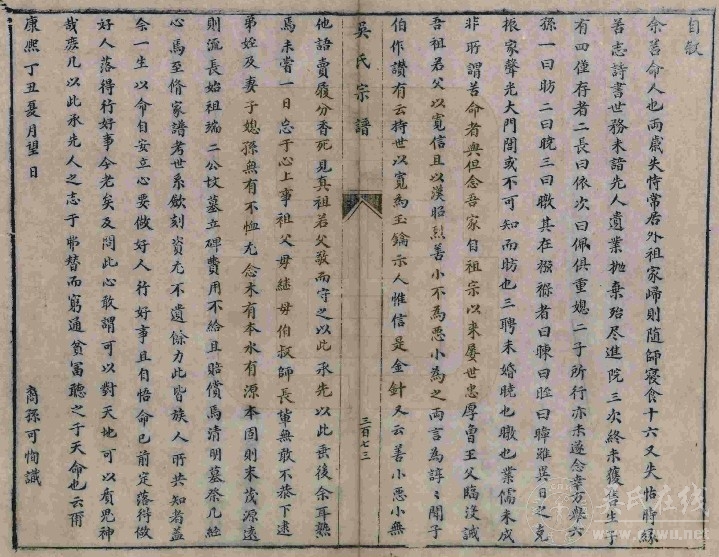 自敘
余苦命人也兩歲失恃常居外祖家歸則隨師寢食十六又失怙時雖
苦志詩書世務未諳先人遺業拋棄殆盡進院三次終未獲售生子
有四僅存者二長曰依次曰佩俱重媳二子所行亦未遂念幸方舉六
孫一曰昉二曰晥三曰暾其在襁褓者曰暕曰晊曰暲雖異日之克
振家聲光大門閭或不可知而昉也三聘未婚晥也暾也業儒未成
非所謂苦命者與但念吾家自祖宗以來屢世忠厚曾王父臨沒誡
吾祖若父以寬信且以漢昭烈善小不為惡小為之兩言為諄諄聞于
伯作讚有云持世以寬為玉鑰示人惟信是金針又云善小惡小無
吳氏宗譜
三百七三
他語賣履分香死見真祖若父敬而守之以此承先以此垂後余耳熟
焉未嘗一日忘于心上事祖父母繼母伯叔師長輩無敢不恭下逮
弟姪及妻子媳孫無有不恤尤念木有本水有源本固則末茂源遠
則流長始祖端二公坟墓立碑費用不給且賠償焉清明墓祭几經
心焉至脩家譜考世系歛刻資尤不遺餘力此皆族人所共知者蓋
余一生以命自安立心要做好人行好事且自悟命已前定落得做
好人落得行好事今老矣反問此心敢謂可以對天地可以質鬼神
哉庶几以此承先人之志于弗替而窮通貧富聽之于天命也云爾
康熙丁丑夏月望日
裔孫可恂識
吳氏在线
www.cnwu.net